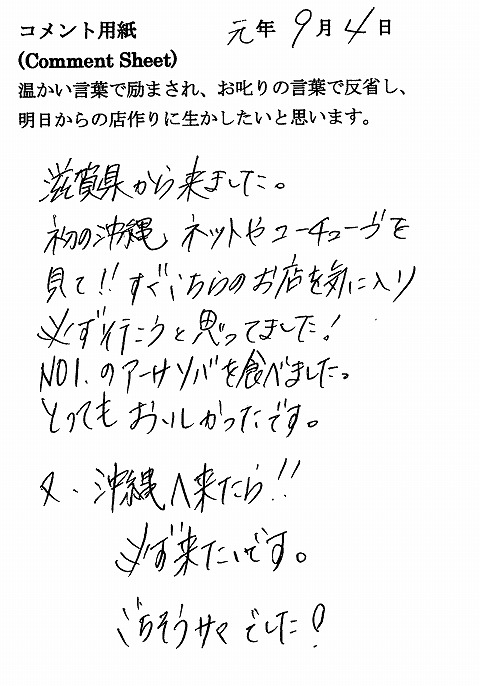 コメント用紙 元年 9月 4日
(Comment Sheet)
温かい言葉で励まされ、お叱りの言葉で反省し、
明日からの店作りに生かしたいと思います。
滋賀県から来ました。
初の沖縄 ネットやユーチューブを
見て!! すぐこちらのお店を気に入り
必ず行こうと思ってました!
NO1.のアーサソバを食べました。
とってもおいしかったです。
又、沖縄へ来たら!!
必ず来たいです。
ごちそうサマでした!